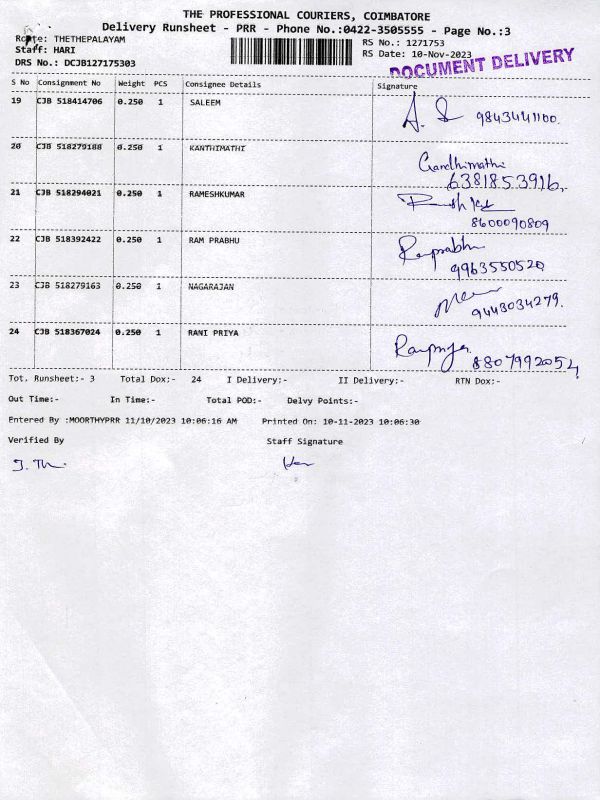 THE PROFESSIONAL COURIERS, COIMBATORE
Delivery Runsheet - PRR - Phone No.:0422-3505555 - Page No.:3
Route: THETHEPALAYAM
RS No.: 1271753
Staff: HARI
RS Date: 10-Nov-2023
DRS No.: DCJB127175303
DOCUMENT DELIVERY
S No Consignment No Weight PCS Consignee Details Signature
19 CJB 518414706 0.250 1 SALEEM
9843441100.
20 CJB 518279188 0.250 1 KANTHIMATHI
Gandhimathi
6381853916.
21 CJB 518294021 0.250 1 RAMESHKUMAR
8600090809
22 CJB 518392422 0.250 1 RAM PRABHU
Ramprabhu
9963550520
23 CJB 518279163 0.250 1 NAGARAJAN
9443034279.
24 CJB 518367024 0.250 1 RANI PRIYA
8807992054
Tot. Runsheet:- 3 Total Dox:- 24 I Delivery:- II Delivery:- RTN Dox:-
Out Time:- In Time:- Total POD:- Delvy Points:-
Entered By :MOORTHYPRR 11/10/2023 10:06:16 AM Printed On: 10-11-2023 10:06:30
Verified By Staff Signature